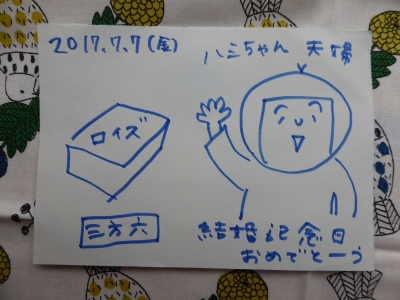 2017.7.7(金)
ハミちゃん 夫婦
ロイズ
三方六
結婚記念日
おめでとーう